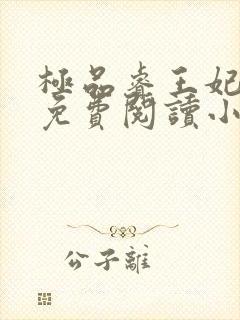 極品睿王妃
免費閱讀小
公子離